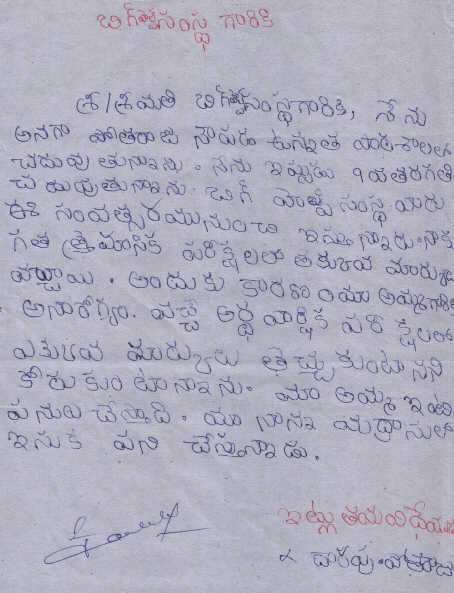 బిగ్‌హెల్ప్ సంస్థ గారికి
శ్రీ/శ్రీమతి బిగ్‌హెల్ప్ సంస్థగారికి, నేను
అనగా పోతరాజు నాపురం ఉన్నత పాఠశాలలో
చదువుతున్నాను. నేను ఇప్పుడు 9వతరగతి
చదువుతున్నాను. బిగ్ హెల్ప్ సంస్థ వారు
ఈ సంవత్సరమునుంచి ఇస్తున్నారు. నాకు
గత త్రైమాసిక పరీక్షలలో తక్కువ మార్కులు
వచ్చాయి. అందుకు కారణం మా అమ్మగారికి
అనారోగ్యం. వచ్చే అర్థ వార్షిక పరీక్షలలో
ఎక్కువ మార్కులు తెచ్చుకుంటానని
కోరుకుంటున్నాను. మా అమ్మ ఇంటి
పనులు చేస్తాది. మా నాన్న మద్రాసులో
ఇసుక పని చేస్తున్నాడు.
ఇట్లు తమ విధేయు
పోతరాజు